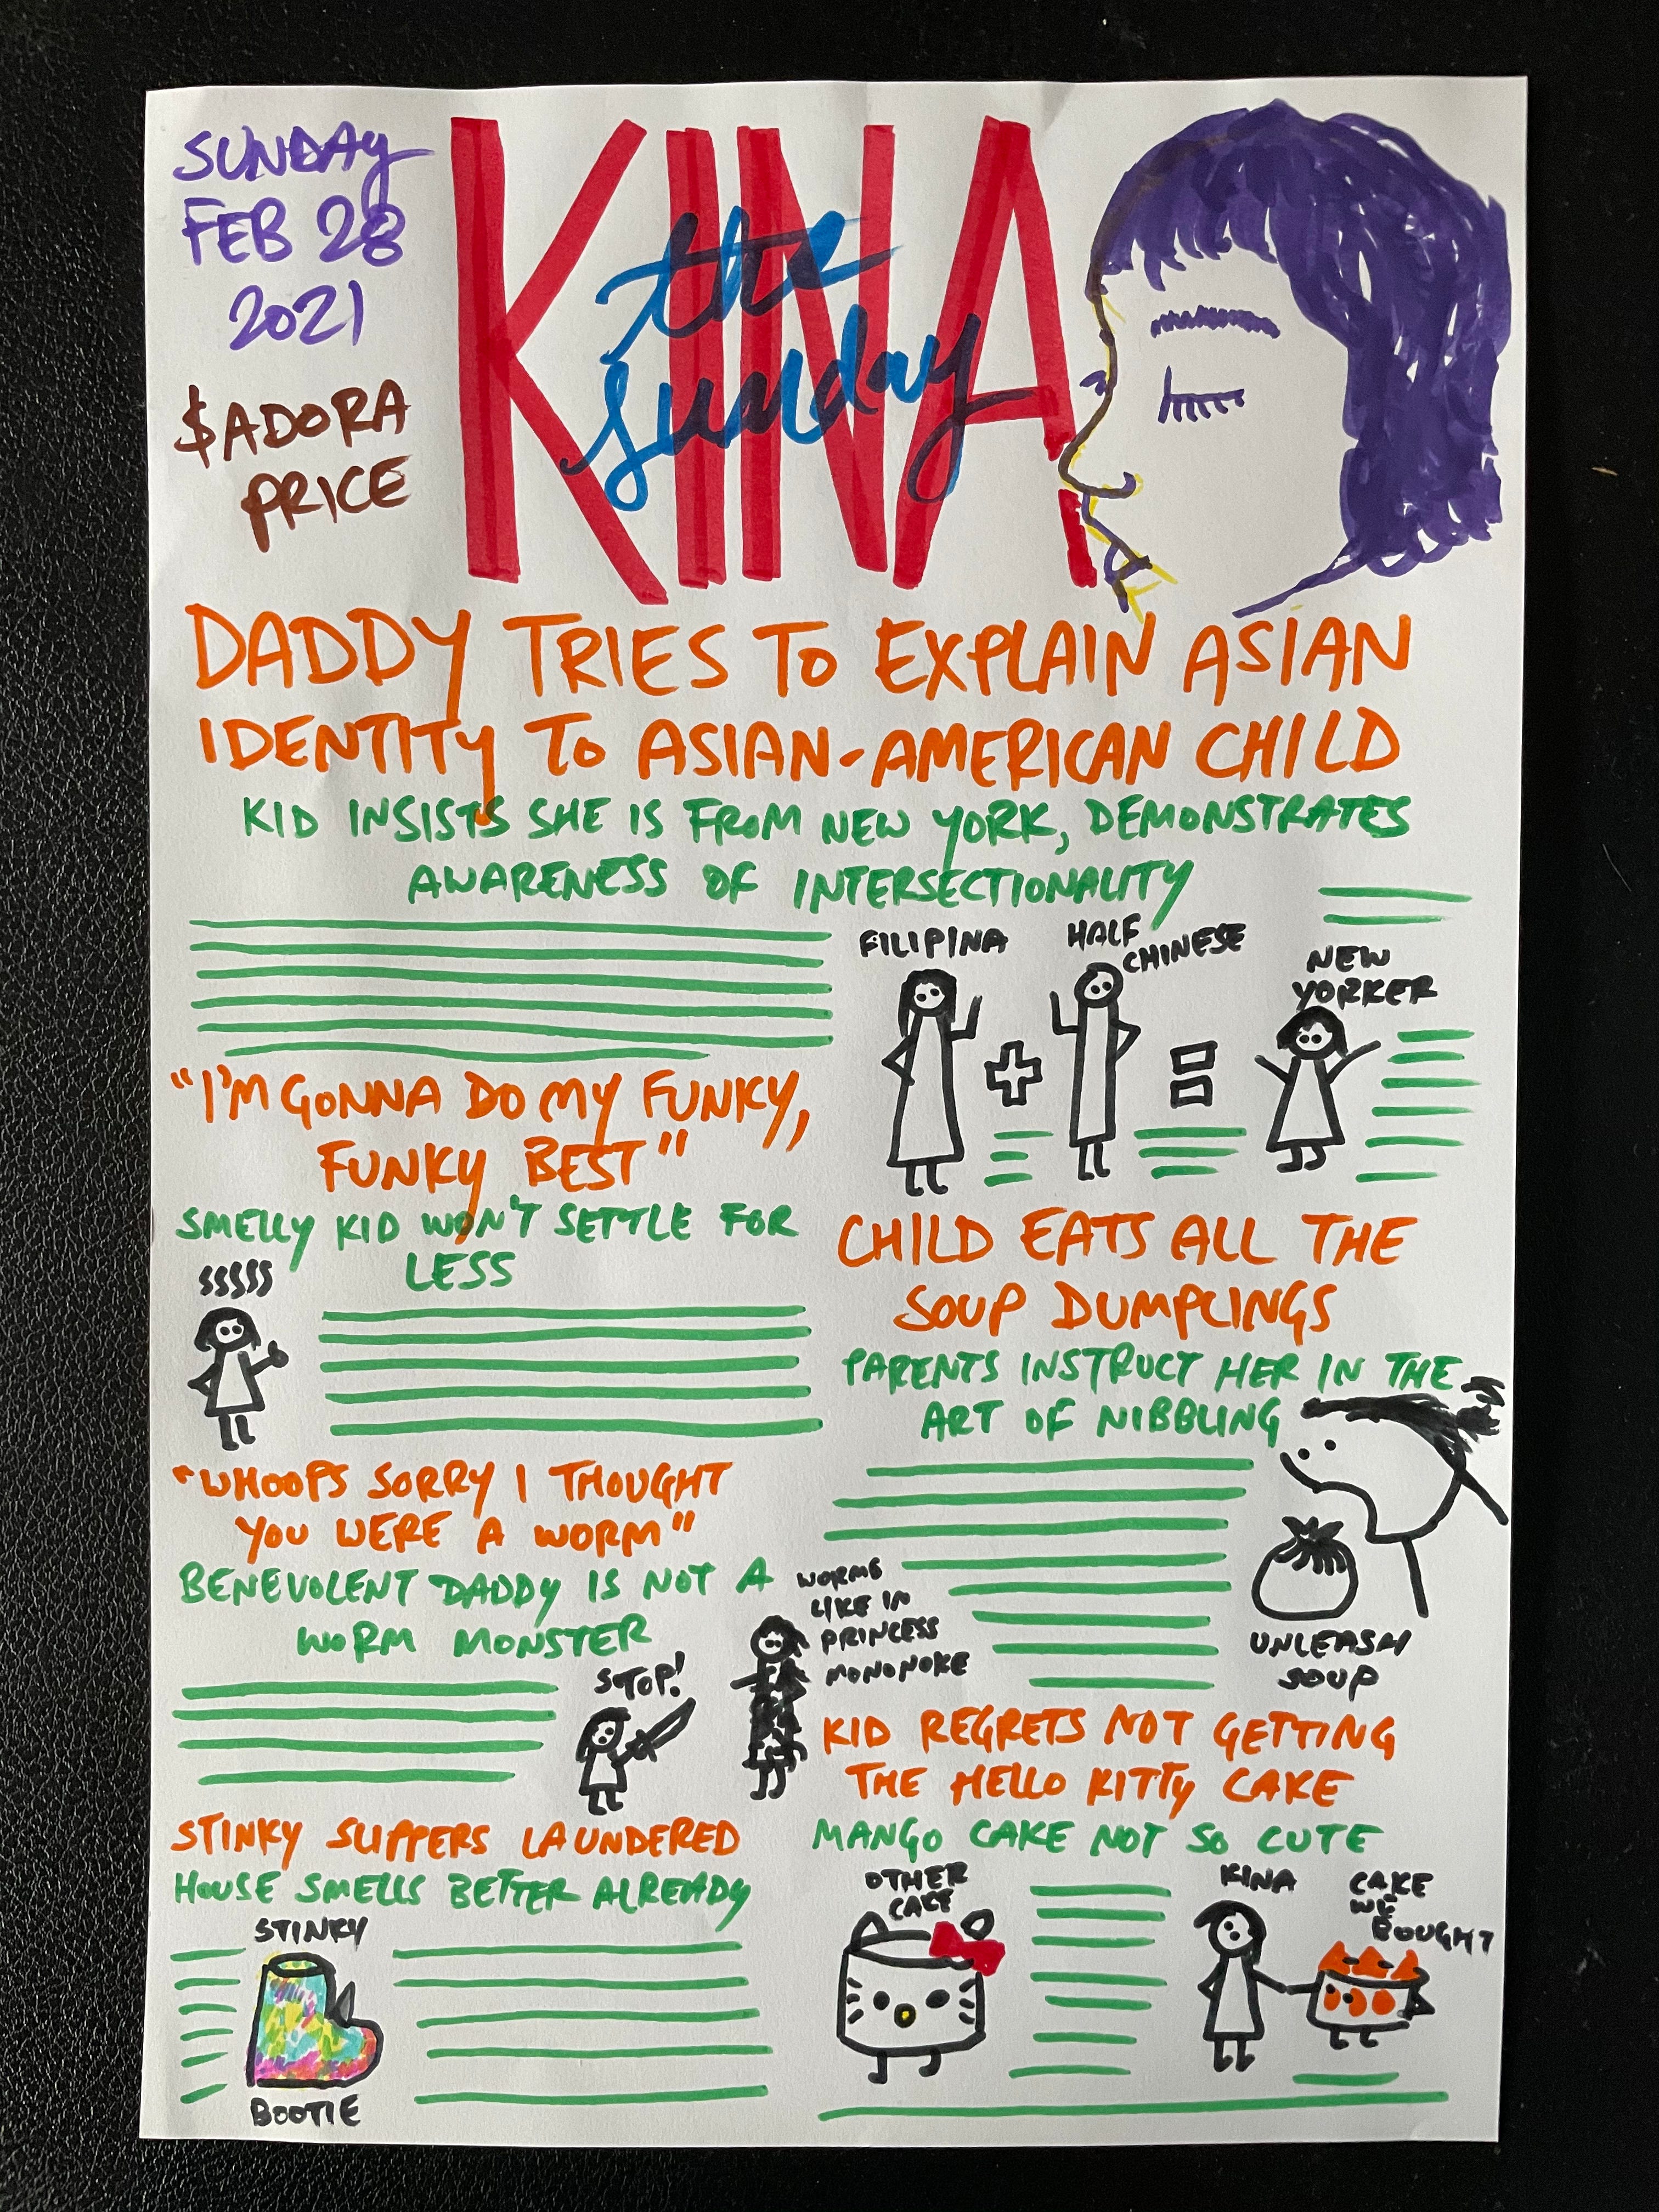 SUNDAY
FEB 28
2021
$ADORA
PRICE
KINA
the
sunday
DADDY TRIES TO EXPLAIN ASIAN
IDENTITY TO ASIAN-AMERICAN CHILD
KID INSISTS SHE IS FROM NEW YORK, DEMONSTRATES
AWARENESS OF INTERSECTIONALITY
FILIPINA
HALF
CHINESE
NEW
YORKER
"I'M GONNA DO MY FUNKY,
FUNKY BEST"
SMELLY KID WON'T SETTLE FOR
LESS
SSSSS
CHILD EATS ALL THE
SOUP DUMPLINGS
PARENTS INSTRUCT HER IN THE
ART OF NIBBLING
UNLEASH
SOUP
"WHOOPS SORRY I THOUGHT
YOU WERE A WORM"
BENEVOLENT DADDY IS NOT A
WORM MONSTER
STOP!
WORMS
LIKE IN
PRINCESS
MONONOKE
KID REGRETS NOT GETTING
THE HELLO KITTY CAKE
MANGO CAKE NOT SO CUTE
OTHER
CAKE
KINA
CAKE
WE
BOUGHT
STINKY SLIPPERS LAUNDERED
HOUSE SMELLS BETTER ALREADY
STINKY
BOOTIE